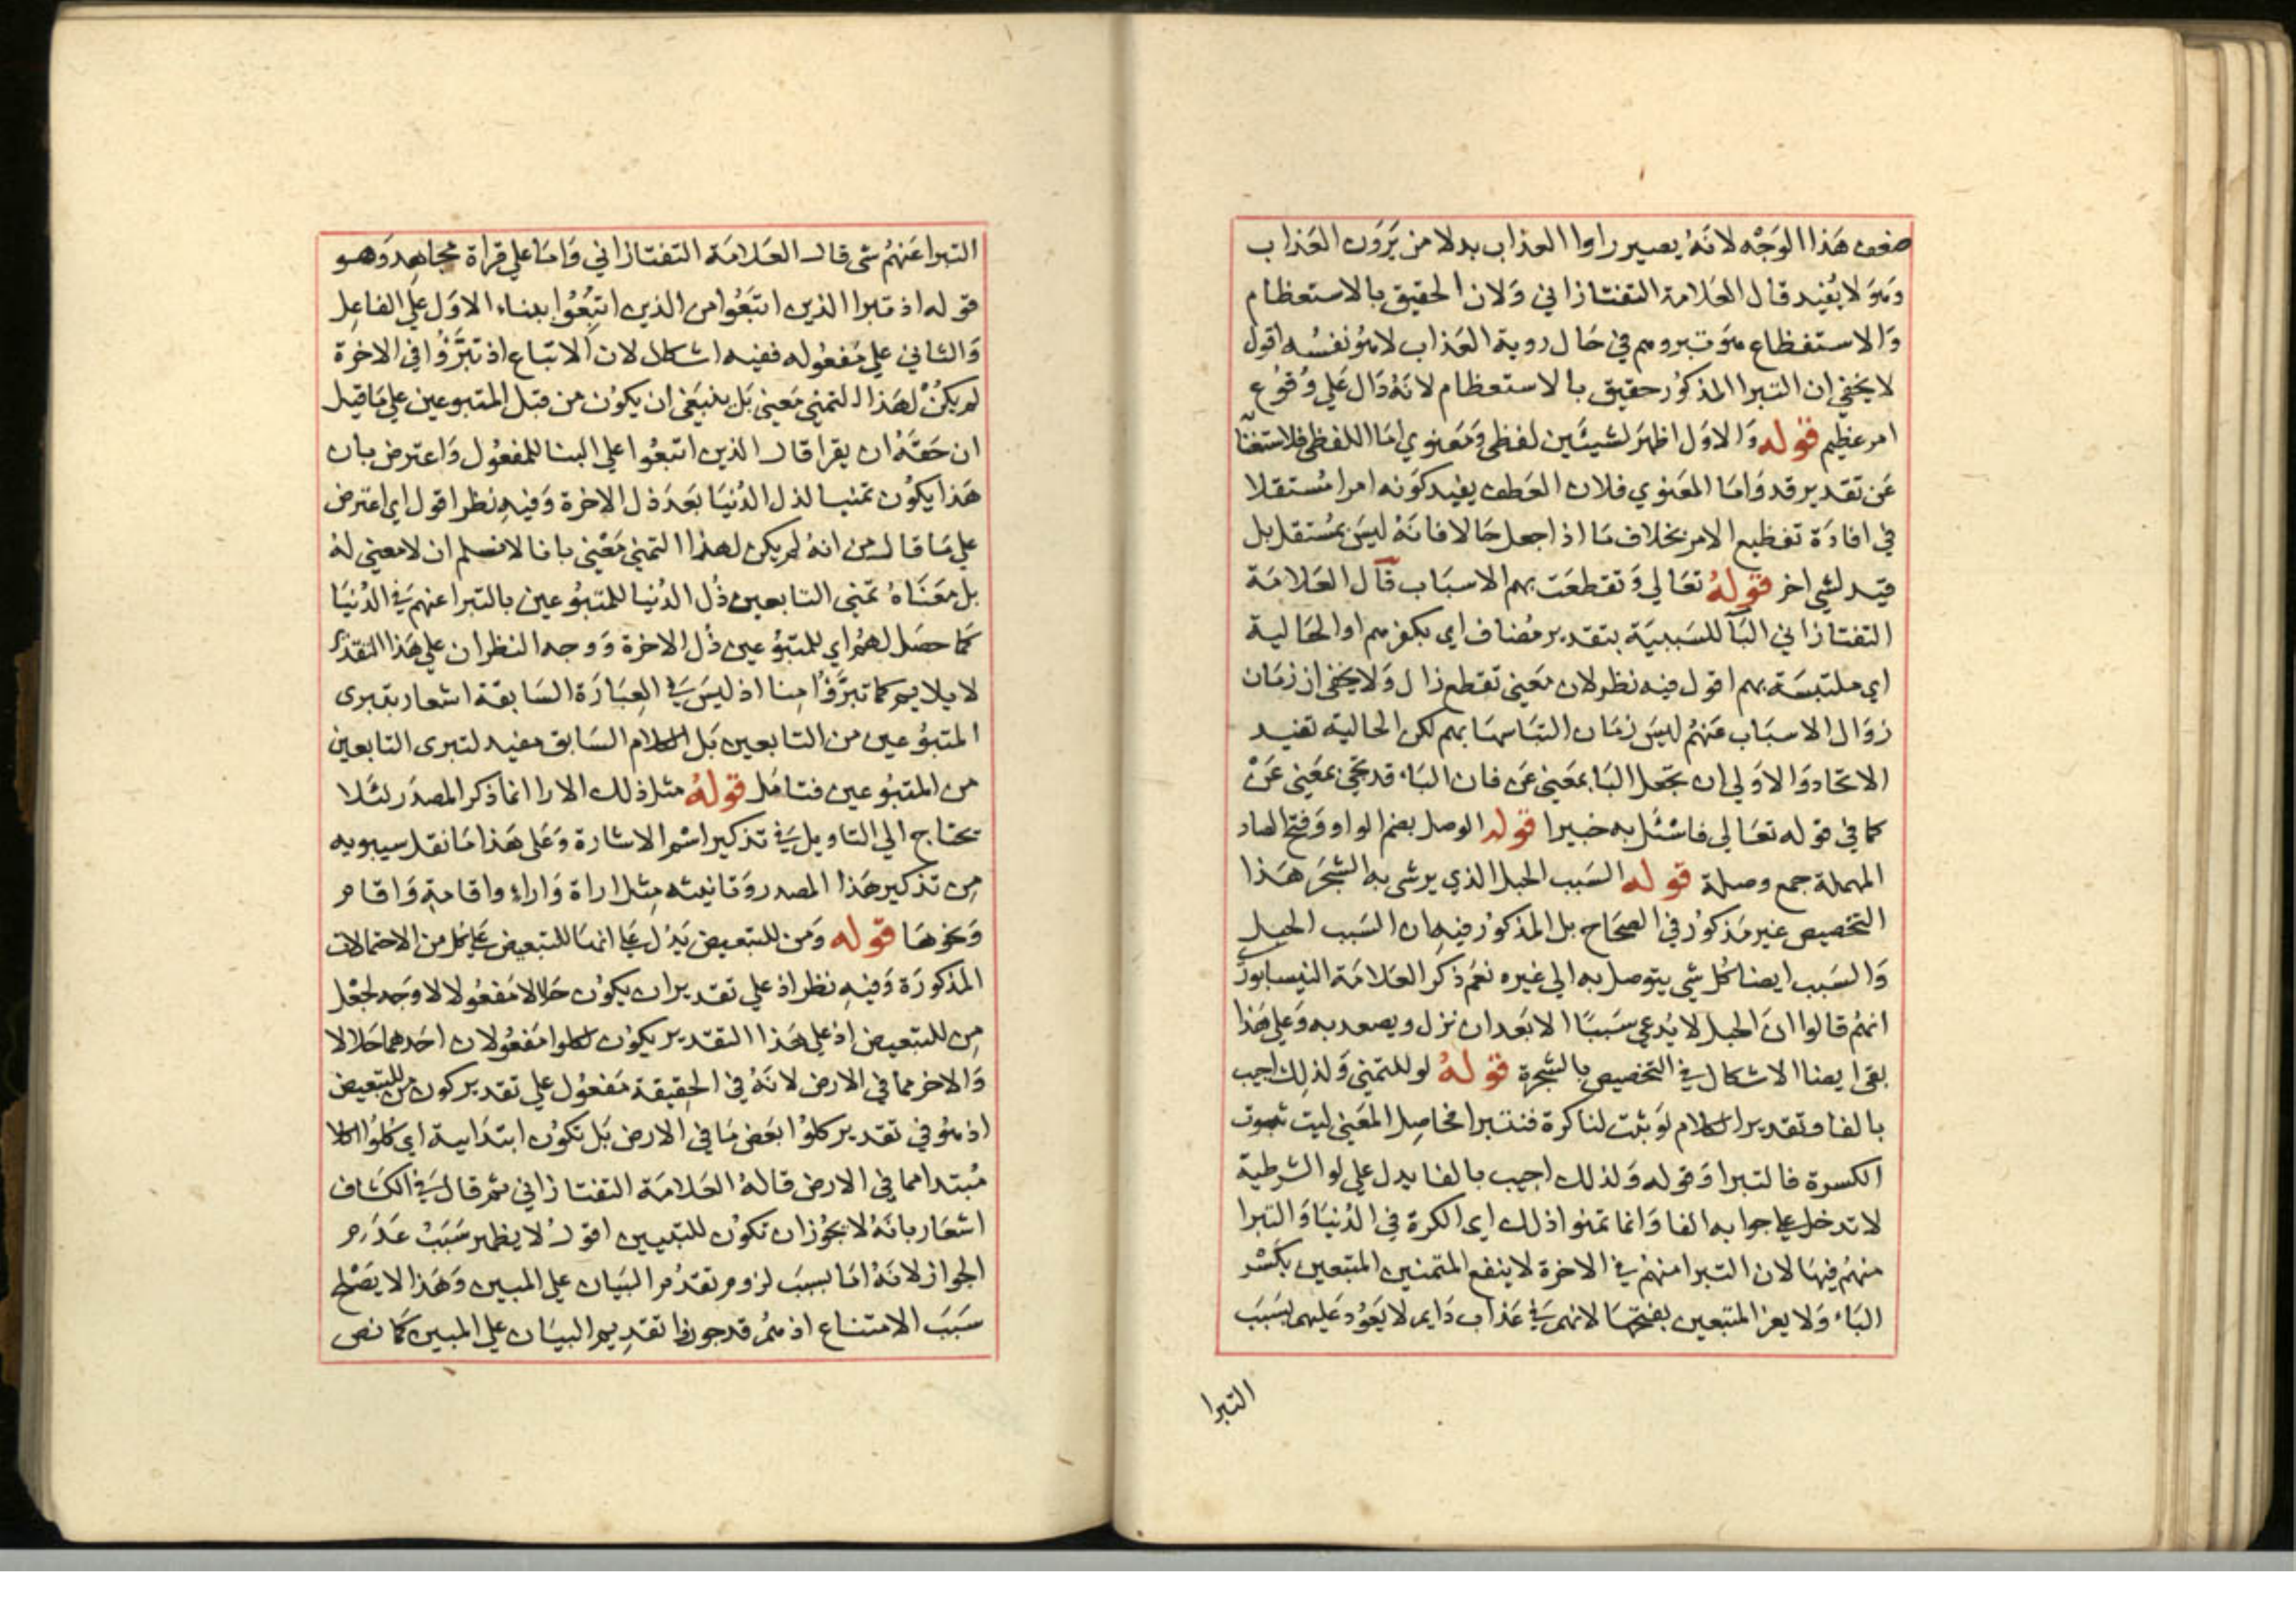 ضعف هذا الوجه لانه يصير راوا العذاب بدلا من يرون العذاب
وهو لا يفيد قال العلامة التفتازاني ولان الحقيق بالاستعظام
والاستفظاع هو تبروهم في حال روية العذاب لا هو نفسه اقول
لا يخفي ان التبرا المذكور حقيق بالاستعظام لانه دال علي وقوع
امر عظيم قوله والاول اظهر لشيئين لفظي ومعنوي اما اللفظي فلاستغنا
عن تقدير قد واما المعنوي فلان العطف يفيد كونه امرا مستقلا
في افادة تفظيع الامر بخلاف ما اذا جعل حالا فانه ليس بمستقل بل
قيد لشي اخر قوله تعالي وتقطعت بهم الاسباب قال العلامة
التفتازاني البا للسببية بتقدير مضاف اي بكفرهم او الحالية
اي ملتبسة بهم اقول فيه نظر لان معني تقطع زال ولا يخفي ان زمان
زوال الاسباب عنهم ليس زمان التباسها بهم لكن الحالية تفيد
الاتحاد والاولي ان تجعل البا بمعني عن فان الباء قد تجي بمعني عن
كما في قوله تعالي فاسئل به خبيرا قوله الوصل بضم الواو وفتح الصاد
المهملة جمع وصلة قوله السبب الحبل الذي يرشي به الشجر هذا
التخصيص غير مذكور في الصحاح بل المذكور فيه ان السبب الحبل
والسبب ايضا كل شي يتوصل به الي غيره نعم ذكر العلامة النيسابوري
انهم قالوا ان الحبل لا يدعي سببا الا بعد ان نزل ويصعد به وعلي هذا
بقي ايضا الاشكال في التخصيص بالشجرة قوله لو للتمني ولذلك اجيب
بالفا وتقدير الكلام لو ثبت لنا كرة فنتبرا فحاصل المعني ليت ثبوت
الكسرة فالتبرا وقوله ولذلك اجيب بالفا يدل علي لو الشرطية
لا تدخل علي جوابه الفا وانما تمنوا ذلك اي الكرة في الدنيا والتبرا
منهم فيها لان التبرا منهم في الاخرة لا ينفع المتمنين المتبعين بكسر
الباء ولا يعز المتبعين بفتحها لانهم في عذاب دايم لا يعود عليهم بسبب
التبرا
التبرا عنهم شي قال العلامة التفتازاني واما علي قراة مجاهد وهو
قوله اذ تبرا الذين اتبعوا من الذين اتبعوا بناء الاول علي الفاعل
والثاني علي مفعوله ففيه اشكال لان الاتباع اذ تبرؤا في الاخرة
لم يكن لهذا التمني معني بل ينبغي ان يكون من قبل المتبوعين علي ما قيل
ان حقه ان يقرا قال الذين اتبعوا علي البنا للمفعول واعترض بان
هذا يكون تمنيا لذل الدنيا بعد ذل الاخرة وفيه نظر اقول اي اعترض
علي ما قال من انه لم يكن لهذا التمني معني بانا لا نسلم ان لا معني له
بل معناه تمني التابعين ذل الدنيا للمتبوعين بالتبرا عنهم في الدنيا
كما حصل لهم اي للمتبوعين ذل الاخرة ووجه النظر ان علي هذا التقدير
لا يلايم كما تبرؤا منا اذ ليس في العبارة السابقة اشعار بتبري
المتبوعين من التابعين بل الكلام السابق مفيد لتبري التابعين
من المتبوعين فتامل قوله مثل ذلك الارا انما ذكر المصدر لئلا
تحتاج الي التاويل في تذكير اسم الاشارة وعلي هذا ما نقل سيبويه
من تذكير هذا المصدر وتانيثه مثل اراة واراء واقامة واقام
ونحوها قوله ومن للتبعيض يدل علي انها للتبعيض علي كل من الاحتمالات
المذكورة وفيه نظر اذ علي تقدير ان يكون حلالا مفعولا لا وجه لجعل
من للتبعيض اذ علي هذا التقدير يكون لكلوا مفعولان احدهما حلالا
والاخر مما في الارض لانه في الحقيقة مفعول علي تقدير كون من للتبعيض
اذ هو في تقدير كلوا بعض ما في الارض بل تكون ابتدايية اي كلوا اكلا
مبتدا مما في الارض قاله العلامة التفتازاني ثم قال في الكشاف
اشعار بانه لا يجوز ان تكون للتبيين اقول لا يظهر سبب عدم
الجواز لانه اما بسبب لزوم تقدم البيان علي المبين وهذا لا يصلح
سبب الامتناع اذ هم قد جوزوا تقديم البيان علي المبين كما نص